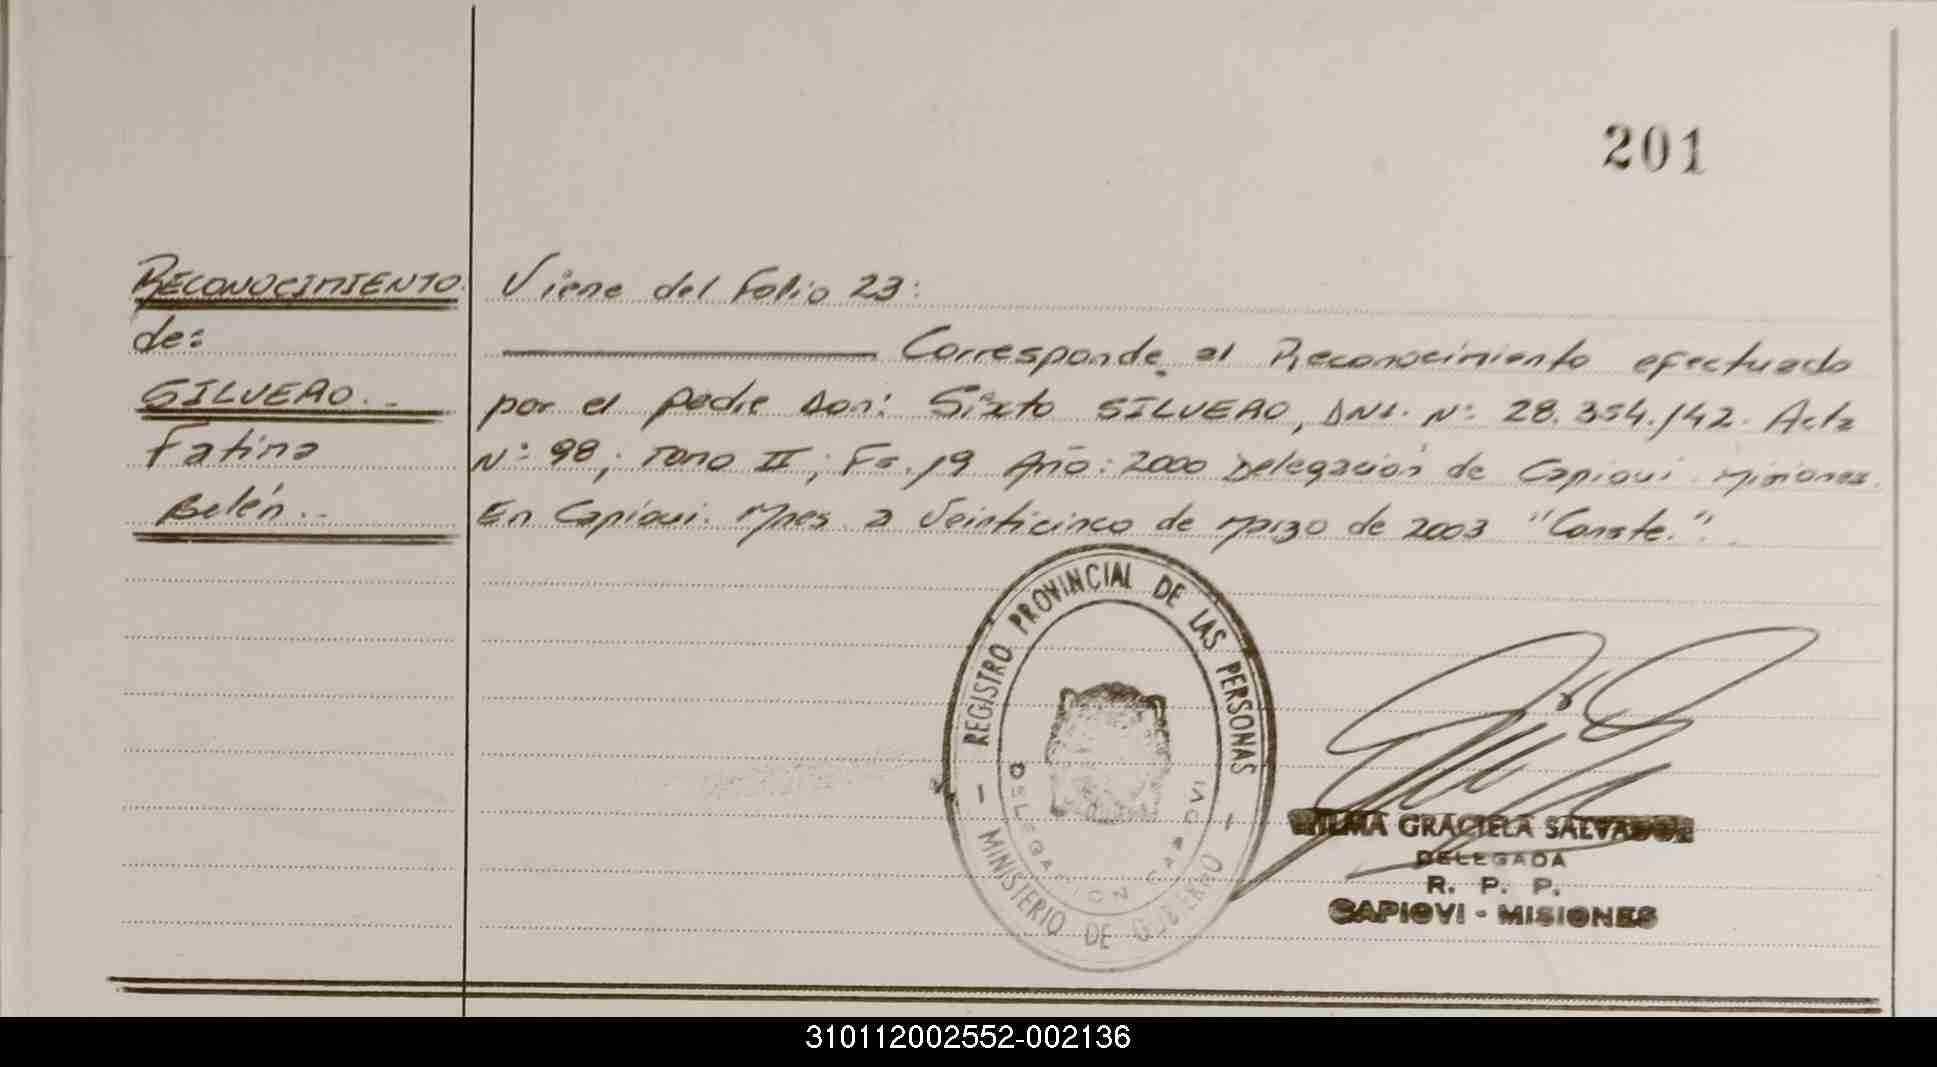 201
RECONOCIMIENTO
de:
SILVERO..
Fatima
Belén..
Viene del Folio 23:
Corresponde al Reconocimiento efectuado
por el padre Don: Sixto SILVERO, DNI. Nº 28.354.142. Acta
Nº 98, Tomo II, Fo. 19 Año: 2000 Delegación de Capiovi Misiones.
En Capiovi. Mnes. a Veinticinco de Marzo de 2003 "Conste."
REGISTRO PROVINCIAL DE LAS PERSONAS
- MINISTERIO DE GOBIERNO -
DELEGACION CAPIOVI
GRACIELA SALVADOR
DELEGADA
R. P. P.
CAPIOVI - MISIONES
310112002552-002136